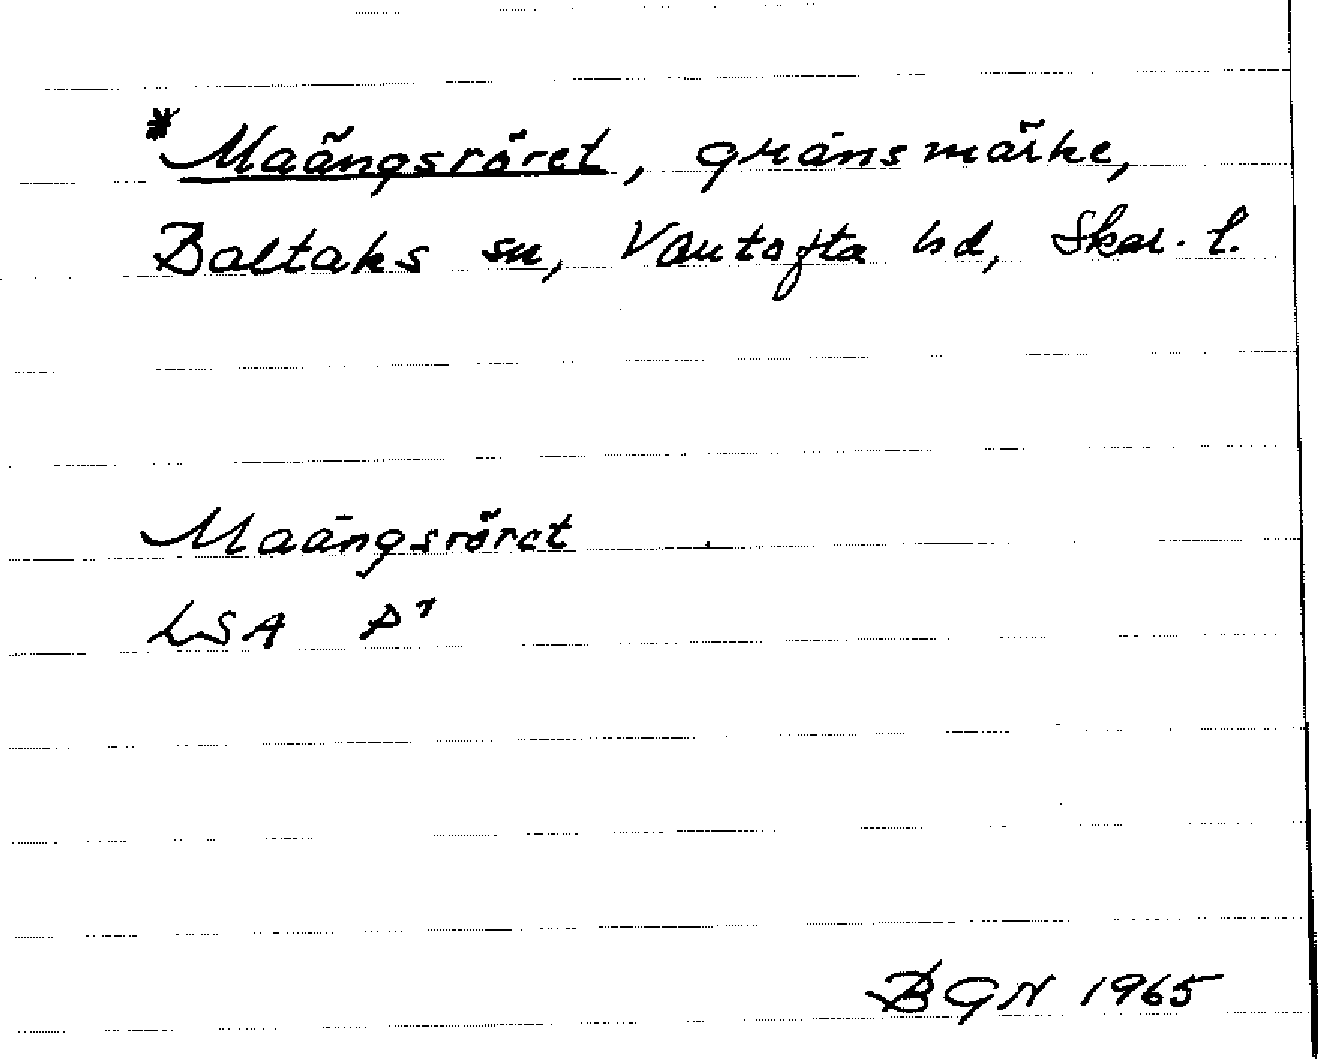 *Maängsröret, gränsmärke,
Baltaks sn, Vartofta hd, Skar. l.
Maängsröret
LSA P⁷
BGN 1965